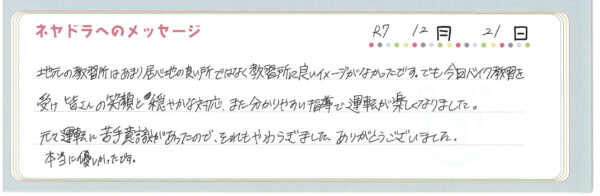 ネヤドラへのメッセージ
R7 12月 21日
地元の教習所はあまり居心地の良い所ではなく教習所に良いイメージがなかったです。でも今回バイク教習を
受け皆さんの笑顔と穏やかな対応、また分かりやすい指導で運転が楽しくなりました。
元々運転に苦手意識があったので、それもやわらぎました、ありがとうございました。
本当に優しかったです。